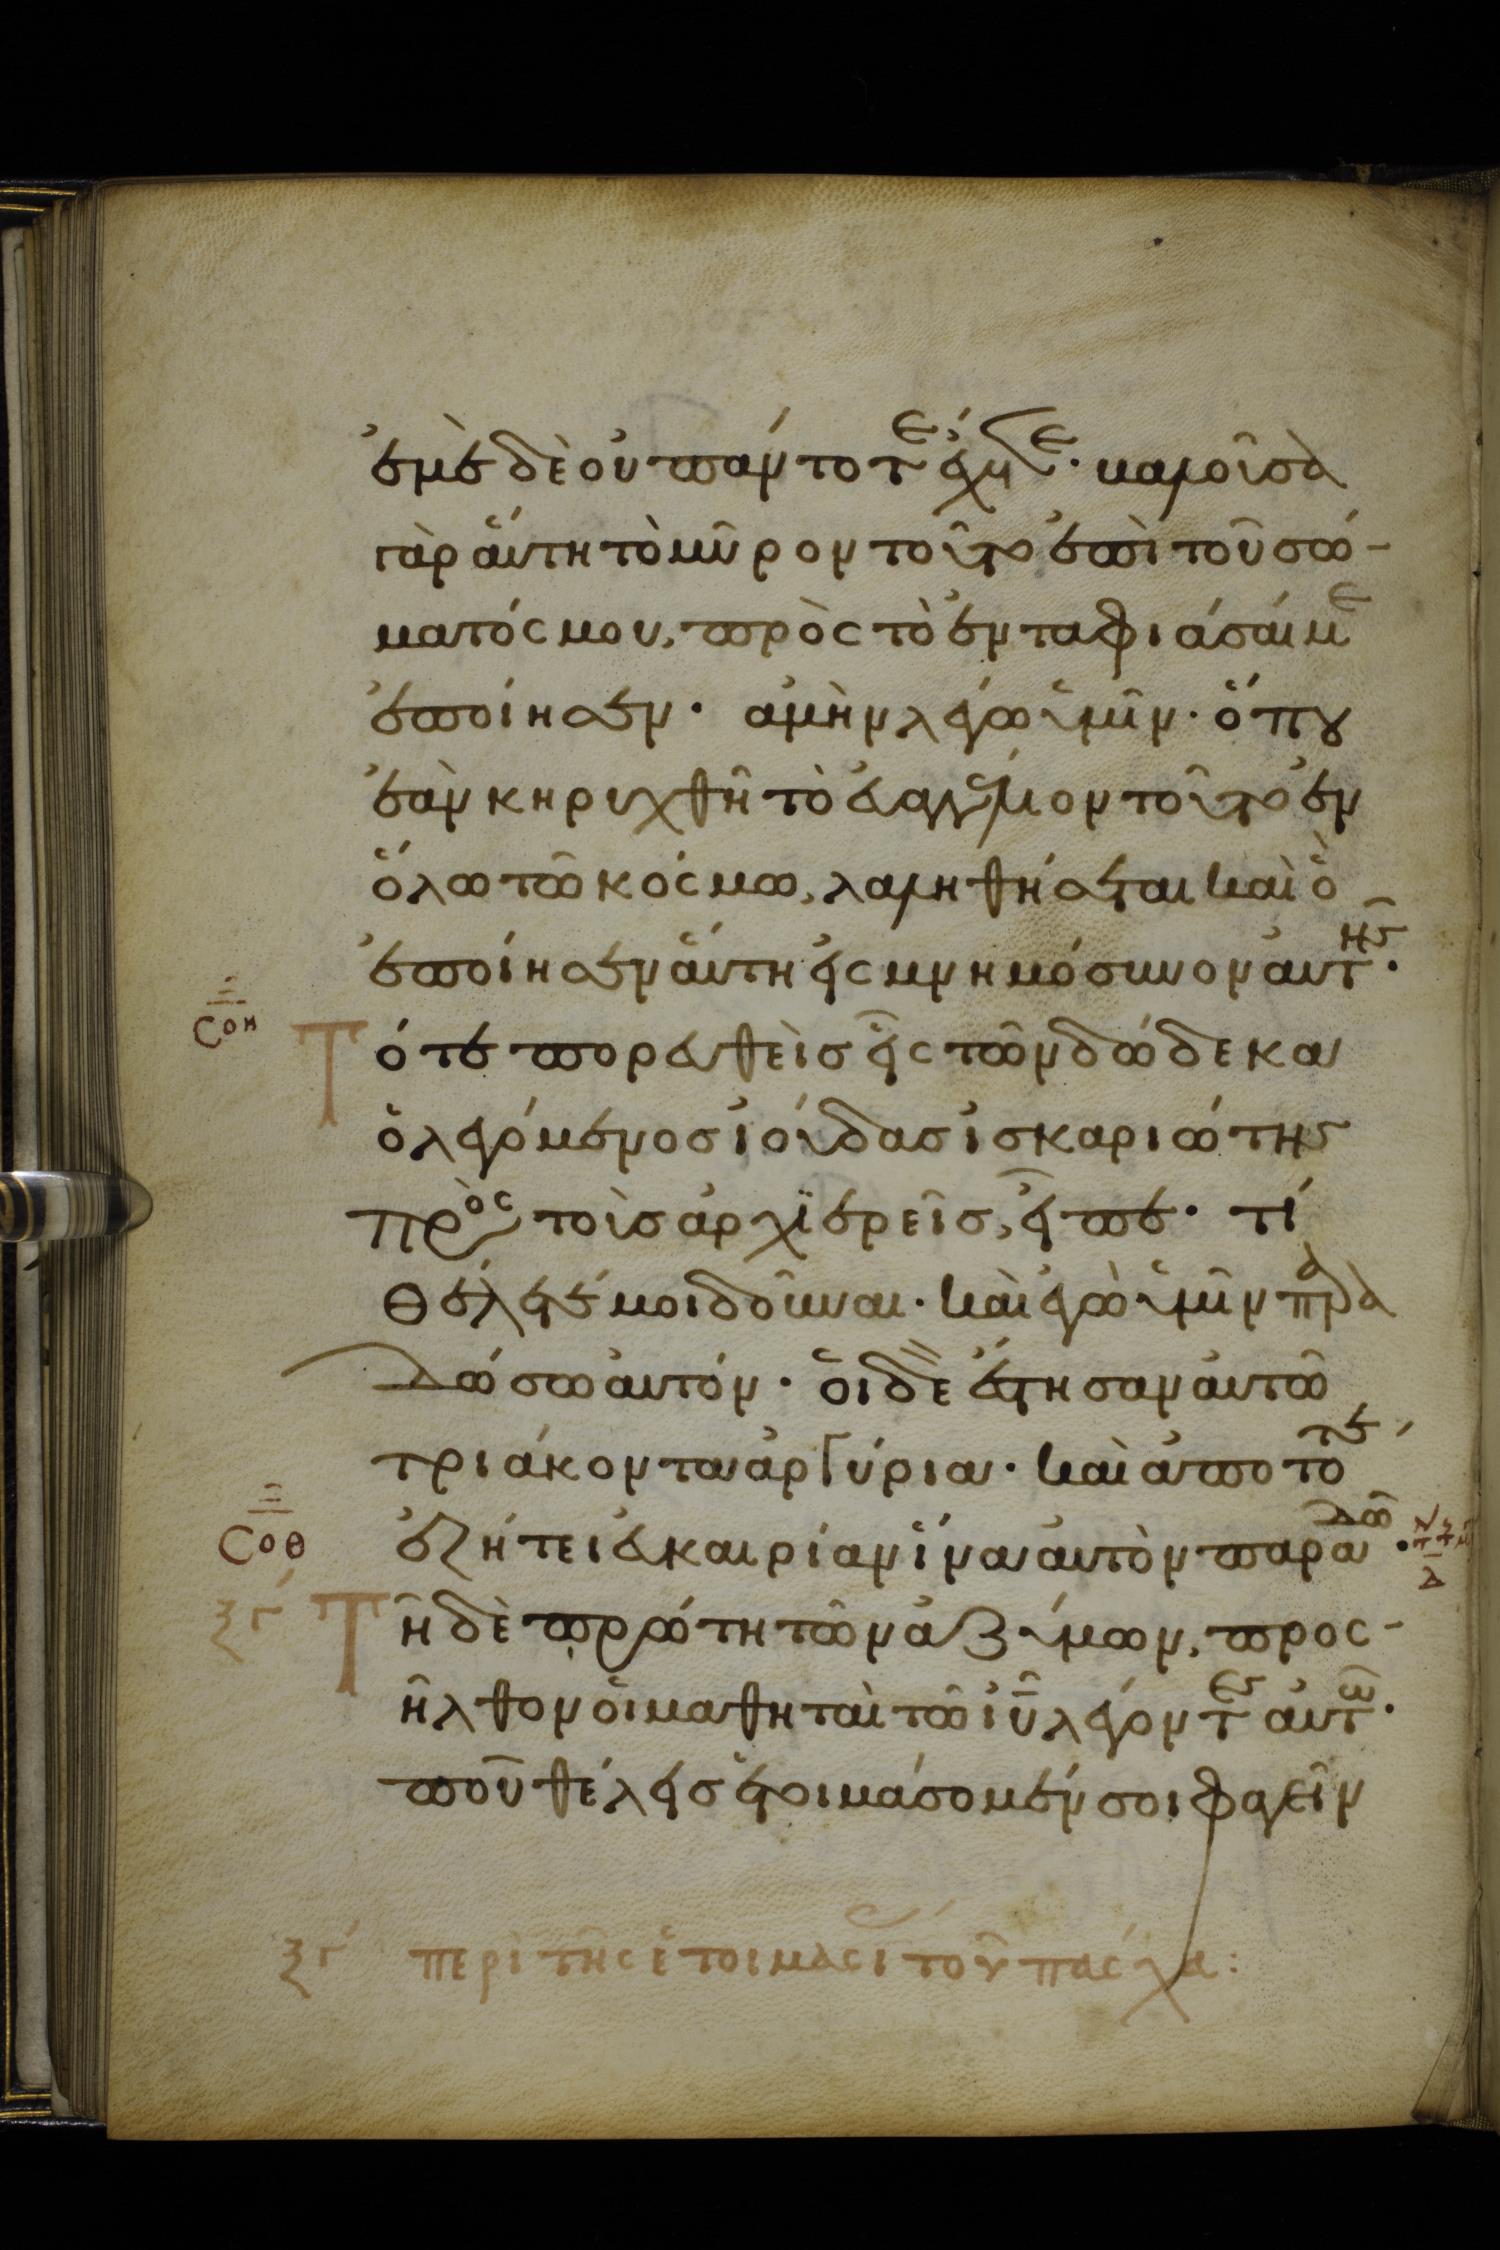 ἐμὲ δὲ οὐ πάντοτε ἔχετε· βαλοῦσα
γὰρ αὕτη τὸ μῦρον τοῦτο ἐπὶ τοῦ σώ-
ματός μου, πρὸς τὸ ἐνταφιάσαι με
ἐποίησεν· ἀμὴν λέγω ὑμῖν· ὅπου
ἐὰν κηρυχθῆ τὸ εὐαγγέλιον τοῦτο ἐν
ὅλω τῶ κόσμω, λαληθήσεται καὶ ὃ
ἐποίησεν αὕτη εἰς μνημόσυνον αὐτῆς·
Ξ
ϹΟΗ
Τότε πορευθεὶς εἷς τῶν δώδεκα
ὁ λεγόμενος ἰούδας ἰσκαριώτης
πρὸς τοὺς ἀρχϊερεῖς, εἶπε· τί
θέλετέ μοι δοῦναι· καὶ ἐγὼ ὑμῖν παρα
δώσω αὐτόν· οἱ δὲ ἔστησαν αὐτῶ
τριάκοντα ἀργύρια· καὶ ἀπὸ τότε
Ξ
ϹΟΘ
ἐζήτει εὐκαιρίαν ἵνα αὐτὸν παραδῶ·
ξγ
Τῆ δὲ πρώτη τῶν ἀζύμων, προσ-
ῆλθον οἱ μαθηταὶ τῶ ιῦ λέγοντες αὐτῶ·
ποῦ θέλεις ἑτοιμάσομέν σοι φαγεῖν
ξγ περὶ τῆς ἑτοιμασί τοῦ πάσχα: